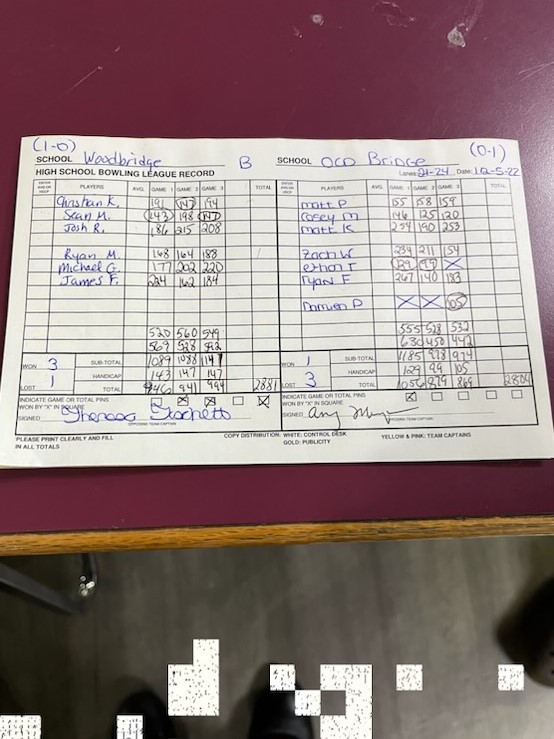 (1-0) (0-1)
SCHOOL Woodbridge B SCHOOL Old Bridge
HIGH SCHOOL BOWLING LEAGUE RECORD Lanes: 21-24 Date: 12-5-22
PLAYERS AVG. GAME 1 GAME 2 GAME 3 TOTAL PLAYERS AVG. GAME 1 GAME 2 GAME 3 TOTAL
Christian K. 191 147 194 Matt P 155 158 159
Sean M. 143 198 147 Casey M 146 125 120
Josh R. 186 215 208 Matt K 254 190 253
Ryan M. 168 164 188 Zach W 234 211 154
Michael G. 177 202 220 Ethan T 129 99 X
James F. 224 162 184 Ryan E 267 140 183
Damien P X X 105
520 560 549 555 528 532
569 528 592 630 450 442
WON 3 SUB-TOTAL 1089 1088 1141 WON 1 SUB-TOTAL 1185 978 974
HANDICAP 143 147 147 HANDICAP 129 99 105
LOST 1 TOTAL 946 941 994 2881 LOST 3 TOTAL 1056 879 869 2804
INDICATE GAME OR TOTAL PINS INDICATE GAME OR TOTAL PINS
WON BY "X" IN SQUARE X X X WON BY "X" IN SQUARE X
SIGNED Theresa SIGNED Amy
OPPOSING TEAM CAPTAIN OPPOSING TEAM CAPTAIN
PLEASE PRINT CLEARLY AND FILL COPY DISTRIBUTION: WHITE: CONTROL DESK YELLOW & PINK: TEAM CAPTAINS
IN ALL TOTALS GOLD: PUBLICITY